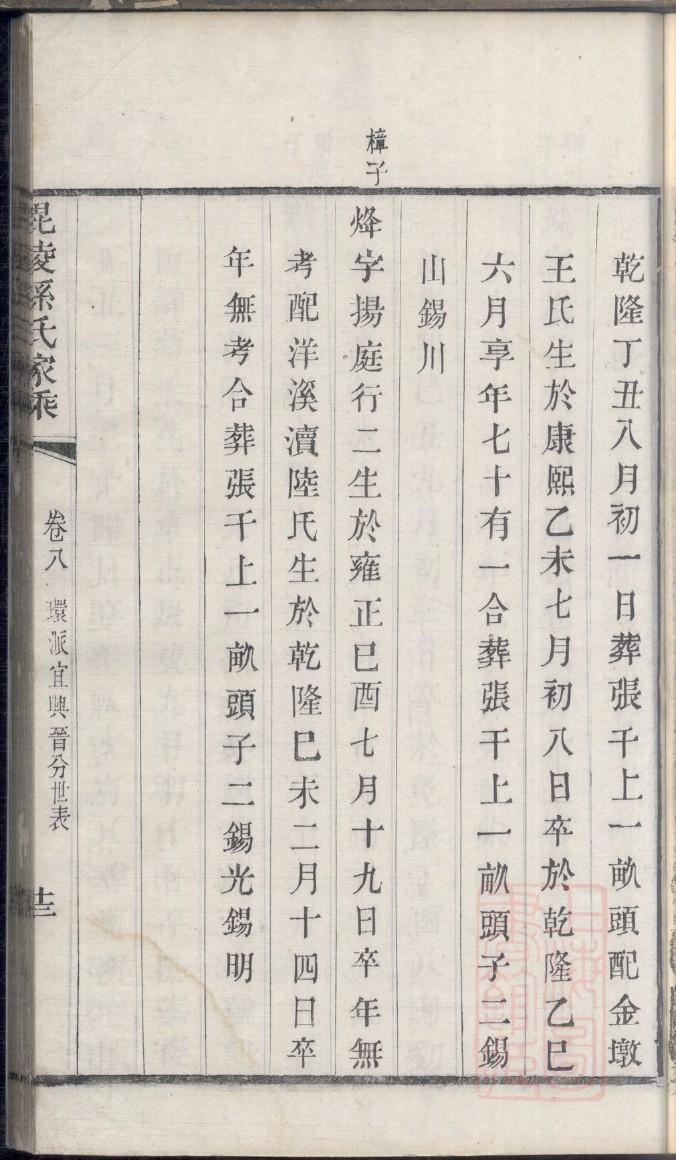 乾隆丁丑八月初一日葬張干上一畝頭配金墩
王氏生於康熙乙未七月初八日卒於乾隆乙巳
六月享年七十有一合葬張干上一畝頭子二錫
山錫川
樟子
烽字揚庭行二生於雍正已酉七月十九日卒年無
考配洋溪瀆陸氏生於乾隆巳未二月十四日卒
年無考合葬張干上一畝頭子二錫光錫明
毘陵孫氏家乘
卷八 環派宜興晉分世表